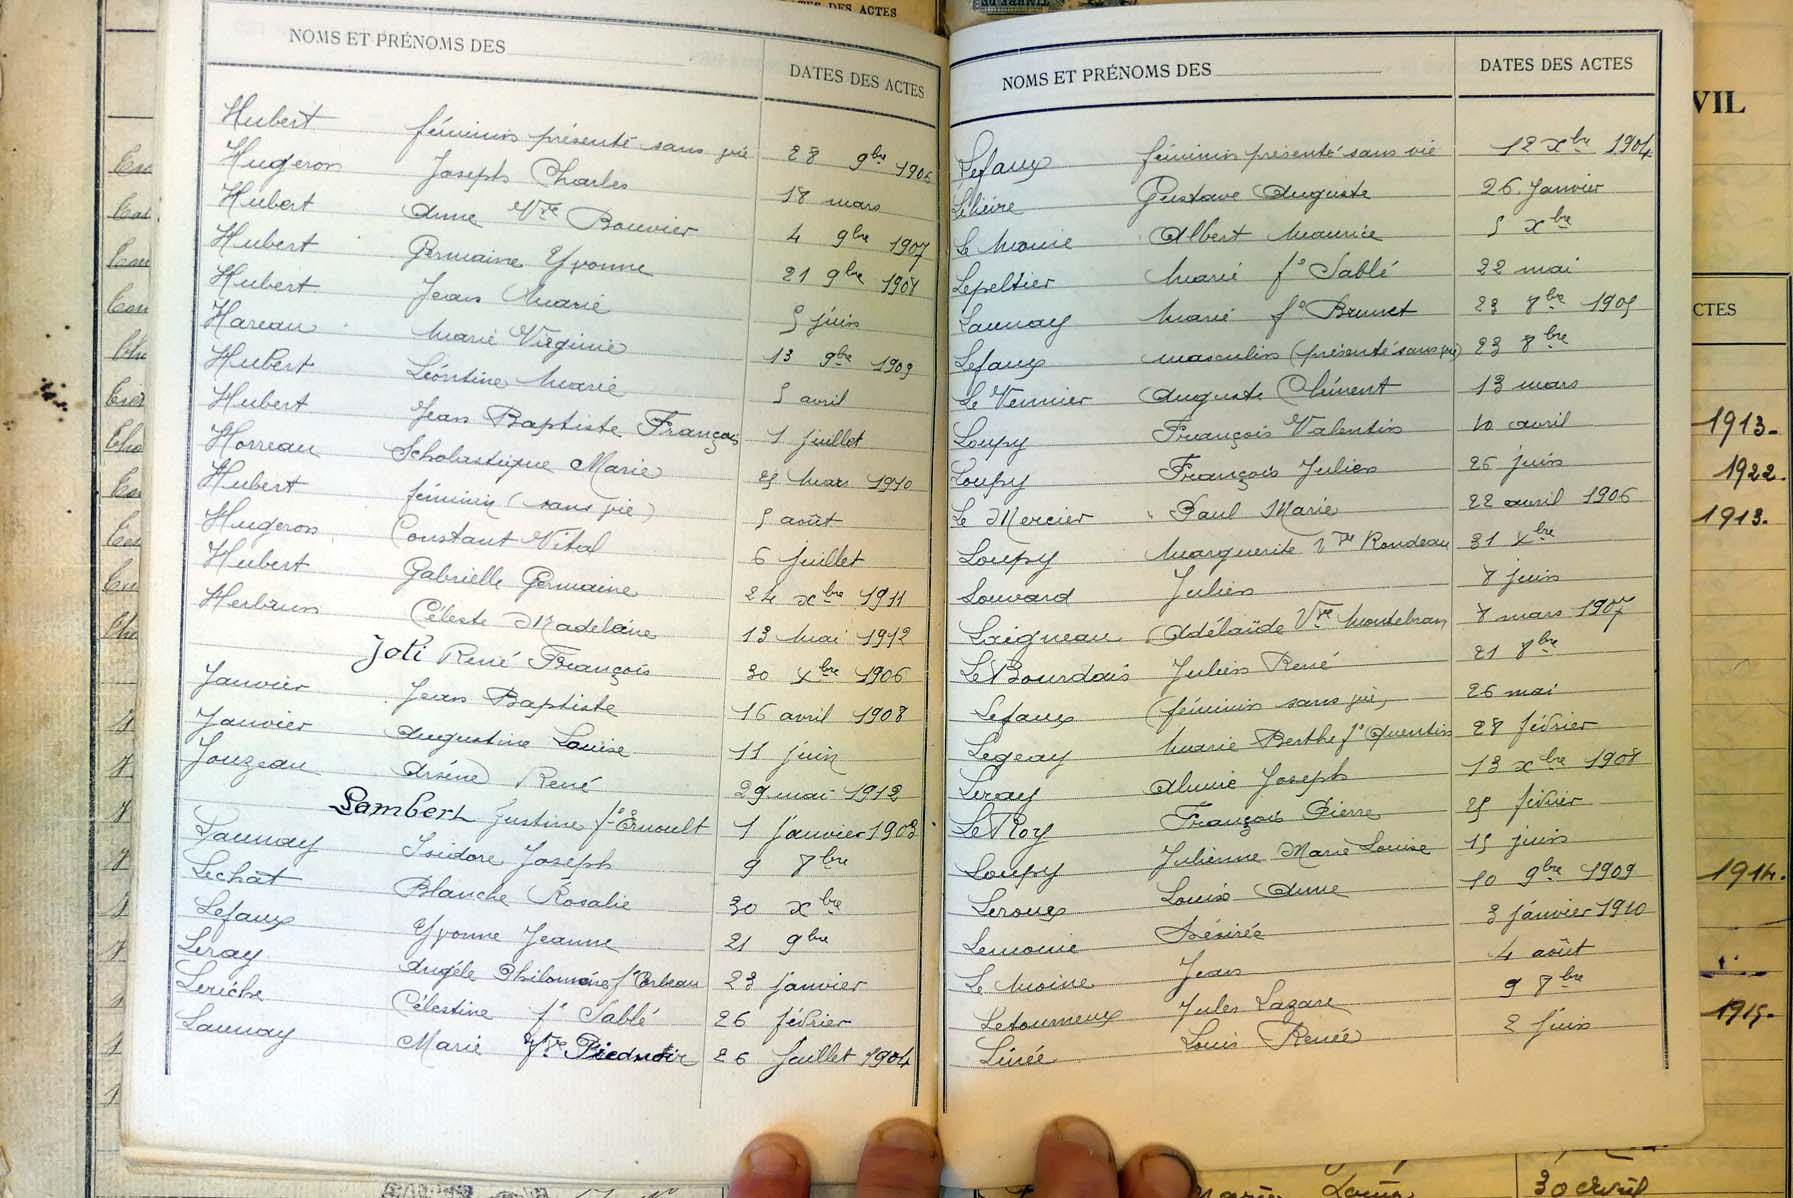 NOMS ET PRÉNOMS DES
DATES DES ACTES
Hubert féminin présenté sans vie 28 9bre 1906
Hugeron Joseph Charles 18 mars
Hubert Anne Vve Bouvier 4 9bre 1907
Hubert Germaine Yvonne 21 9bre 1908
Hubert Jean Marie 5 juin
Hareau Marie Virginie 13 9bre 1909
Hubert Léontine Marie 5 avril
Hubert Jean Baptiste François 1 juillet
Horreau Scholastique Marie 25 Mars 1910
Hubert féminin (sans vie) 5 août
Hugeron Constant Vital 6 juillet
Hubert Gabrielle Germaine 24 xbre 1911
Herbrun Céleste Madeleine 13 Mai 1912
Joli René François 30 xbre 1906
Janvier Jean Baptiste 16 avril 1908
Janvier Augustine Louise 11 juin
Jouzeau Arsène René 29 mai 1912
Lambert Justine fe Ernoult 1 janvier 1903
Launay Isidore Joseph 9 8bre
Lechat Blanche Rosalie 30 xbre
Lefaux Yvonne Jeanne 21 9bre
Leray Angèle Philomène fe Corbeau 23 janvier
Leriche Célestine fe Sablé 26 février
Launay Marie Vve Piednoir 26 Juillet 1904
NOMS ET PRÉNOMS DES
DATES DES ACTES
Lefaux féminin présenté sans vie 12 xbre 1904
Lelièvre Gustave Auguste 26 janvier
Le Moine Albert Maurice 5 xbre
Lepeltier Marie fe Sablé 22 mai
Launay Marie fe Brunet 23 8bre 1905
Lefaux masculin (présenté sans vie) 23 8bre
Le Vennier Auguste Clément 13 mars
Loupy François Valentin 10 avril
Loupy François Julien 26 juin
Le Mercier Paul Marie 22 avril 1906
Loupy Marguerite Vve Rondeau 31 xbre
Louvard Julien 8 juin
Loigneau Adélaïde Vve Montebran 8 mars 1907
Le Bourdais Julien René 21 8bre
Lefaux (féminin sans vie) 26 mai
Legeay Marie Berthe fe Quentin 28 février
Leray Aimé Joseph 13 xbre 1908
Le Roy François Pierre 25 février
Loupy Julienne Marie Louise 15 juin
Leroux Louis Anne 10 9bre 1909
Lemoine Désirée 3 janvier 1910
Le Moine Jean 4 août
Letourneux Jules Lazare 9 8bre
Linée Louis Renée 2 juin
VIL
CTES
1913.
1922.
1913.
1914.
1915.
30 Avril